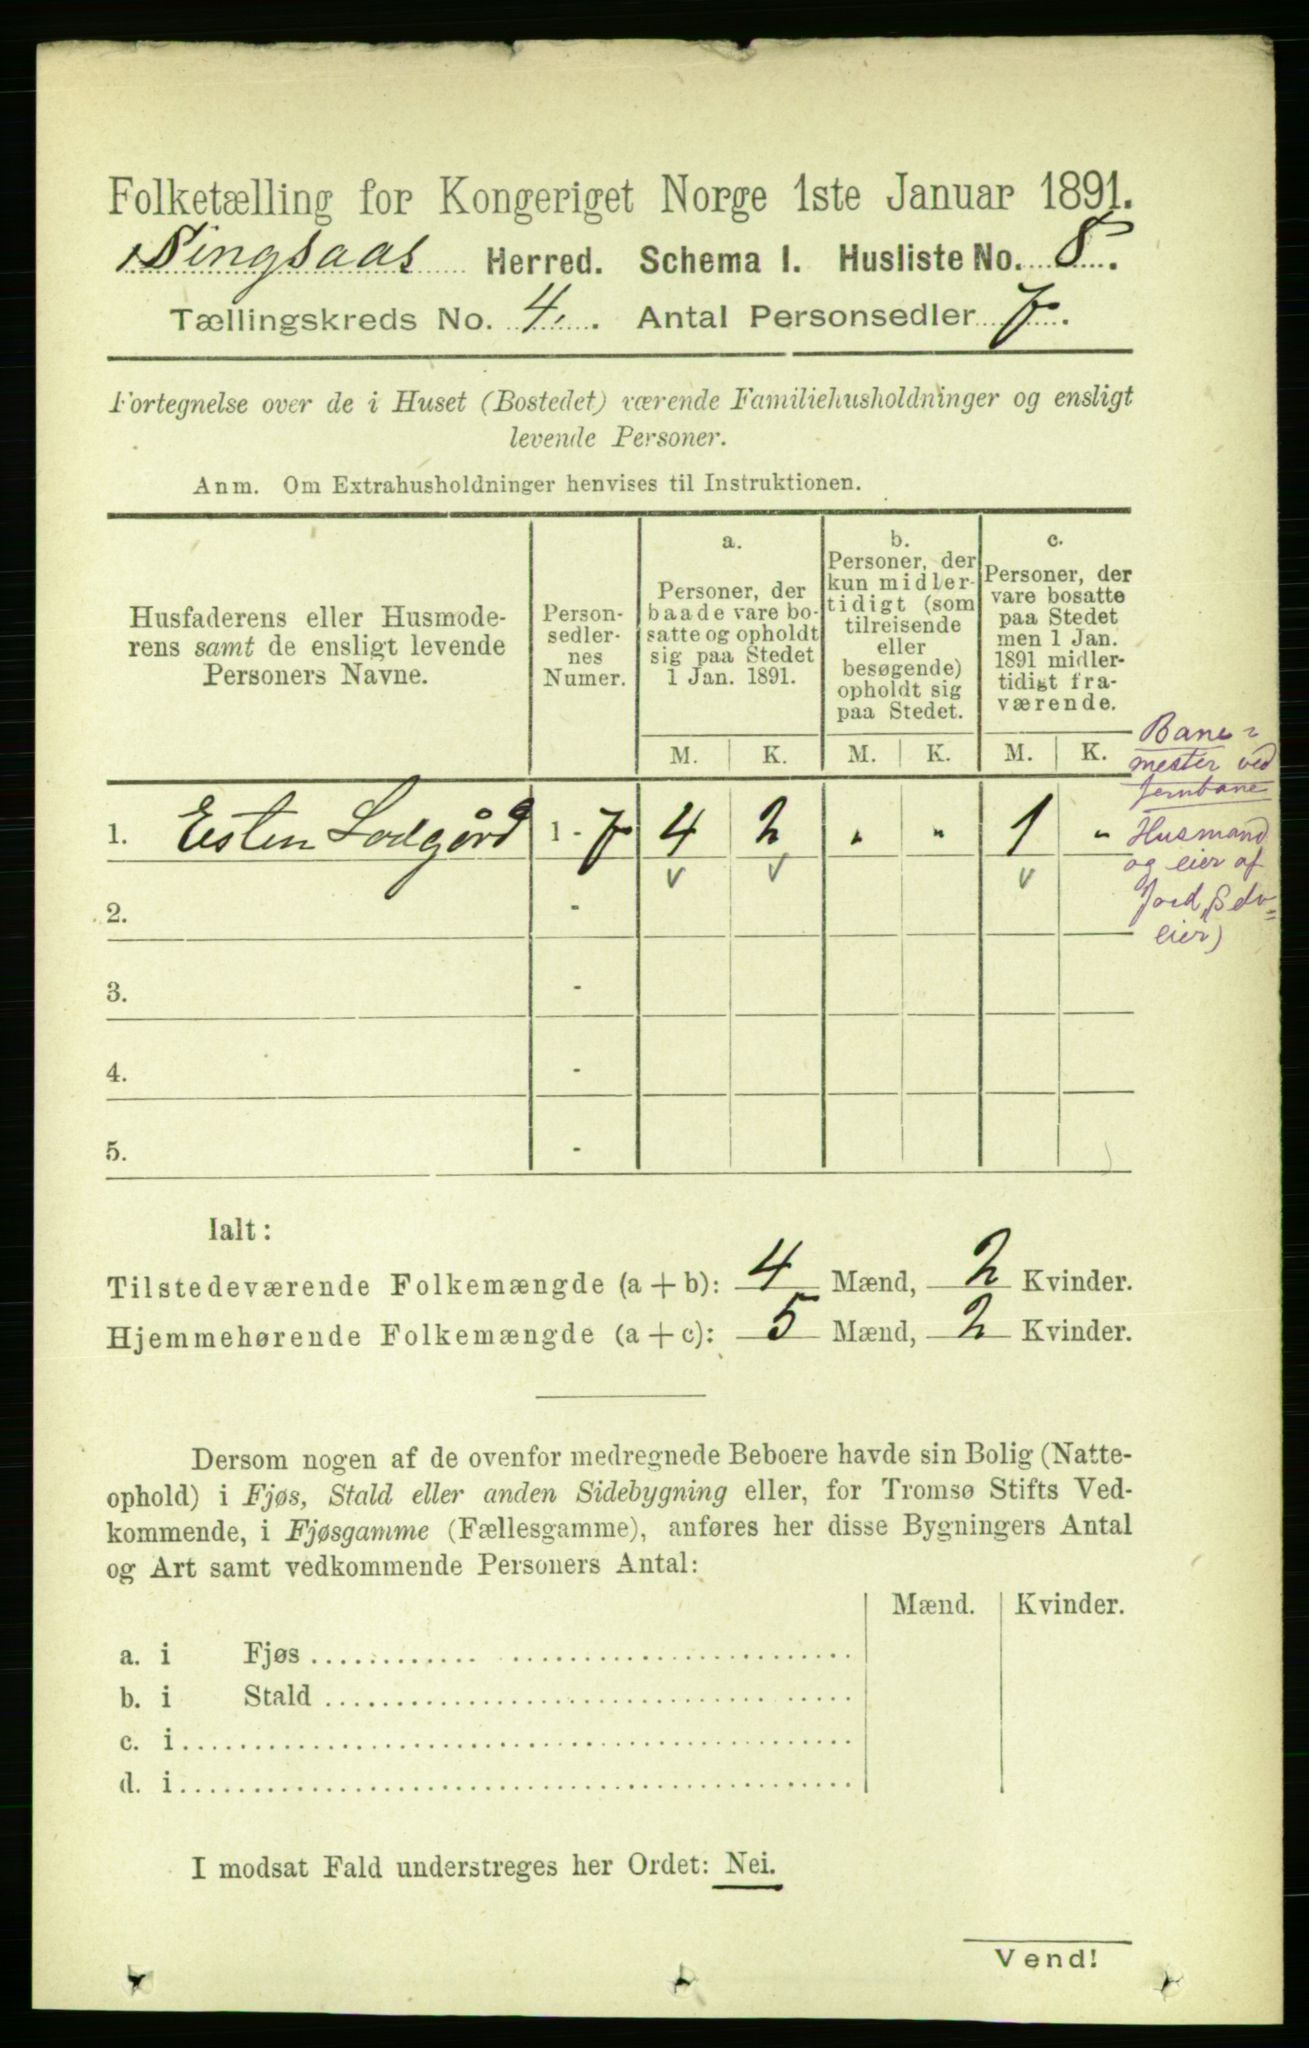 Folketælling for Kongeriget Norge 1ste Januar 1891.
Singsaas Herred. Schema I. Husliste No. 8.
Tællingskreds No. 4. Antal Personsedler 7.
Fortegnelse over de i Huset (Bostedet) værende Familiehusholdninger og ensligt
levende Personer.
Anm. Om Extrahusholdninger henvises til Instruktionen.
Husfaderens eller Husmode-
rens samt de ensligt levende
Personers Navne.
Person-
sedler-
nes
Numer.
a.
Personer, der
baade vare bo-
satte og opholdt
sig paa Stedet
1 Jan. 1891.
b.
Personer, der
kun midler-
tidigt (som
tilreisende
eller
besøgende)
opholdt sig
paa Stedet.
c.
Personer, der
vare bosatte
paa Stedet
men 1 Jan.
1891 midler-
tidigt fra-
værende.
M. K. M. K. M. K.
1. Esten Lodgård 1 - 7 4 2 " " 1 "
Bane-
mester ved
Jernbane
Husmand
og eier af
Jord, Selv=
eier)
2. -
3. -
4. -
5. -
Ialt:
Tilstedeværende Folkemængde (a + b): 4 Mænd, 2 Kvinder.
Hjemmehørende Folkemængde (a + c): 5 Mænd, 2 Kvinder.
Dersom nogen af de ovenfor medregnede Beboere havde sin Bolig (Natte-
ophold) i Fjøs, Stald eller anden Sidebygning eller, for Tromsø Stifts Ved-
kommende, i Fjøsgamme (Fællesgamme), anføres her disse Bygningers Antal
og Art samt vedkommende Personers Antal:
Mænd. Kvinder.
a. i Fjøs
b. i Stald
c. i
d. i
I modsat Fald understreges her Ordet: Nei.
Vend!